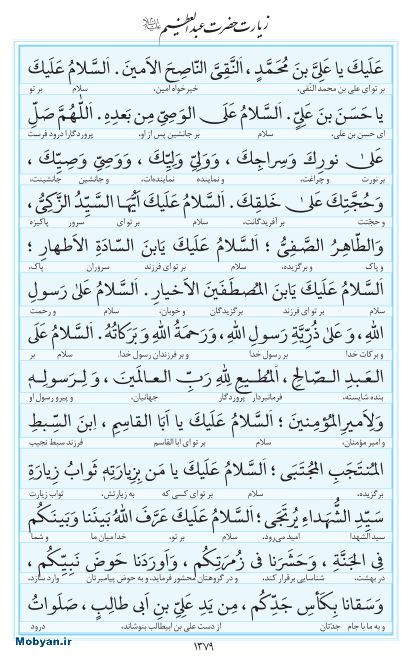 زیارت حضرت عبدالعظیم علیه‌السلام
عَلَیكَ یا عَلِیَّ بنَ مُحَمَّدٍ ، اَلنَّقِیَّ النّاصِحَ الاَمینَ . اَلسَّلامُ عَلَیكَ
بر تو ای علی بن محمد النقی، خیرخواه امین، سلام بر تو
یا حَسَنَ بنَ عَلِیٍّ . اَلسَّلامُ عَلَی الوَصِیِّ مِن بَعدِهِ . اَللّٰهُمَّ صَلِّ
ای حسن بن علی، سلام بر جانشین پس از او. پروردگارا درود فرست
عَلیٰ نورِكَ وَسِراجِكَ ، وَوَلِیِّ وَلِیِّكَ ، وَوَصِیِّ وَصِیِّكَ ،
بر نورت و چراغت، و نماینده نماینده‌ات، و جانشین جانشینت،
وَحُجَّتِكَ عَلیٰ خَلقِكَ . اَلسَّلامُ عَلَیكَ اَیُّهَا السَّیِّدُ الزَّکِیُّ ،
و حجتت بر آفریدگانت، سلام بر تو ای سرور پاکیزه
وَالطّاهِرُ الصَّفِیُّ ؛ اَلسَّلامُ عَلَیكَ یَابنَ السّادَةِ الاَطهارِ ؛
و پاک و برگزیده، سلام بر تو ای فرزند سروران پاک،
اَلسَّلامُ عَلَیكَ یَابنَ المُصطَفَینَ الاَخیارِ . اَلسَّلامُ عَلیٰ رَسولِ
سلام بر تو ای فرزند برگزیدگان و خوبان، سلام و رحمت
اللهِ ، وَ عَلیٰ ذُرِّیَّةِ رَسولِ اللهِ ، وَرَحمَةُ اللهِ وَ بَرَکاتُهُ . اَلسَّلامُ عَلَی
و برکات خدا بر رسول خدا و بر فرزندان رسول خدا. سلام بر
العَبدِ الصّالِحِ ، اَلمُطیعِ لِلّٰهِ رَبِّ العالَمینَ ، وَ لِرَسولِهِ
بنده شایسته، فرمانبردار پروردگار جهانیان، و پیرو رسول او
وَلِاَمیرِالمُؤمِنینَ ؛ اَلسَّلامُ عَلَیكَ یا اَبَا القاسِمِ ، اِبنَ السِّبطِ
و امیر مؤمنان، سلام بر تو ای ابا القاسم فرزند سبط نجیب
المُنتَجَبِ المُجتَبیٰ ؛ اَلسَّلامُ عَلَیكَ یا مَن بِزِیارَتِهِ ثَوابُ زِیارَةِ
برگزیده، سلام بر تو ای کسی که به زیارتش، ثواب زیارت
سَیِّدِ الشُّهَداءِ یُرتَجیٰ ؛ اَلسَّلامُ عَلَیكَ عَرَّفَ اللهُ بَینَنا وَبَینَکُم
سید الشهدا امید می‌رود. سلام بر تو، خدا میان ما و شما
فِی الجَنَّةِ ، وَحَشَرَنا فی زُمرَتِکُم ، وَاَورَدَنا حَوضَ نَبِیِّکُم ،
در بهشت، شناسایی برقرار کند، و در گروهتان محشور فرماید، و به حوض پیامبرتان وارد سازد،
وَسَقانا بِکَأسِ جَدِّکُم ، مِن یَدِ عَلِیِّ بنِ اَبی طالِبٍ ، صَلَواتُ
و به ما با جام جدتان از دست علی بن ابیطالب بنوشاند، درود
۱۳۷۹
Mobyan.ir